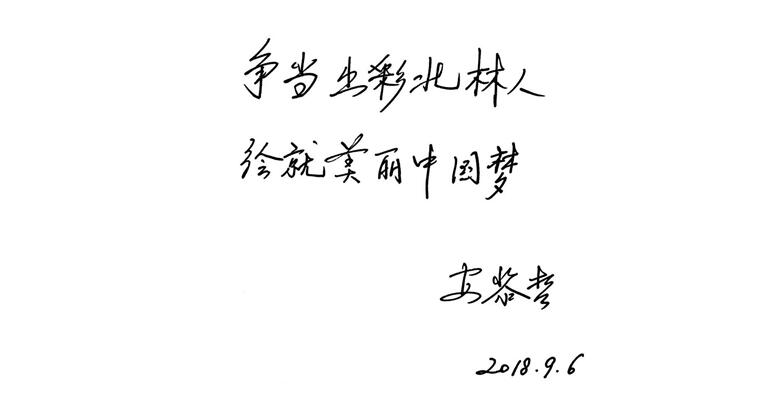 争当出彩北林人
绘就美丽中国梦
安黎哲
2018.9.6